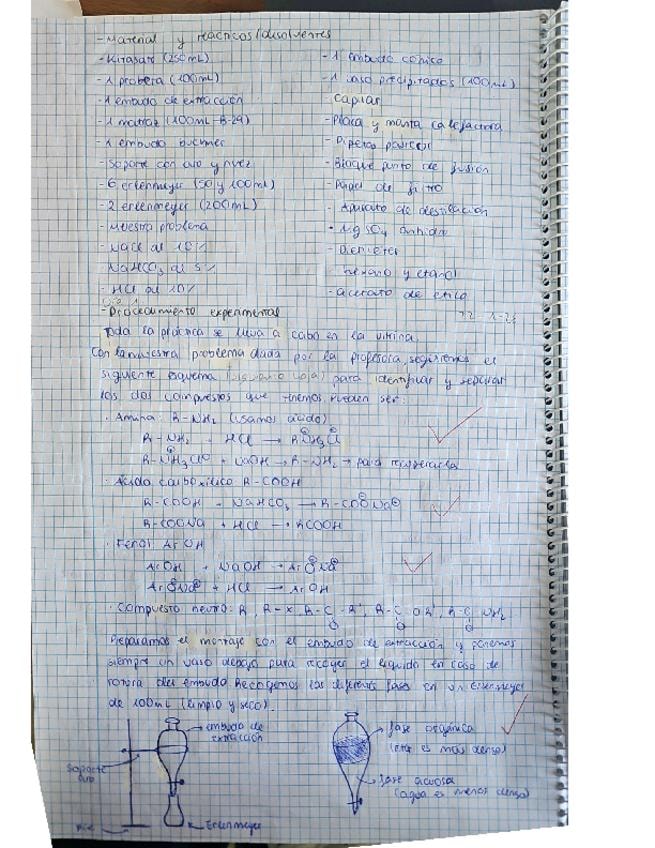 - Material y reactivos/disolventes
- Kitasato (250mL)
- 1 probeta (100mL)
- 1 embudo de extracción
- 1 matraz (100mL-B-29)
- 1 embudo buchner
- Soporte con aro y nuez
- 6 erlenmeyer (50 y 100mL)
- 2 erlenmeyer (200mL)
- Muestra problema
- NaCl al 10%
NaHCO3 al 5%
- HCl al 10%
- 1 embudo cónico
- 1 vaso precipitados (100mL)
Capilar
- Placa y manta calefactora
- Pipetas pasteur
- Bloque punto de fusión
- Papel de filtro
- Aparato de destilación
- MgSO4 anhidro
- Dietileter
- hexano y etanol
- acetato de etilo
- Procedimiento experimental
Toda la práctica se lleva a cabo en la vitrina.
Con la muestra problema dada por la profesora, seguiremos el
siguiente esquema para identificar y separar
los dos compuestos que tenemos. Pueden ser:
· Amina: R-NH2 (usamos ácido)
R-NH2 + HCl → R-NH3⊕ Cl⊖
R-NH3⊕Cl⊖ + NaOH → R-NH2 → para recuperarla
· Ácido carboxílico R-COOH
R-COOH + NaHCO3 → R-COO⊖Na⊕
R-COONa + HCl → RCOOH
· Fenol: ArOH
ArOH + NaOH → ArO⊖Na⊕
ArO⊖Na⊕ + HCl → ArOH
· Compuesto neutro: R, R-X, R-C-R', R-C-OR', R-C-NH2
O O O
Preparamos el montaje con el embudo de extracción y ponemos
siempre un vaso debajo para recoger el líquido en caso de
rotura del embudo. Recogemos las diferentes fases en un Erlenmeyer
de 100mL (limpio y seco).
→ embudo de
extracción
Soporte
aro
Pie
Erlenmeyer
→ fase orgánica
es más denso)
→ fase acuosa
(agua es menos denso)